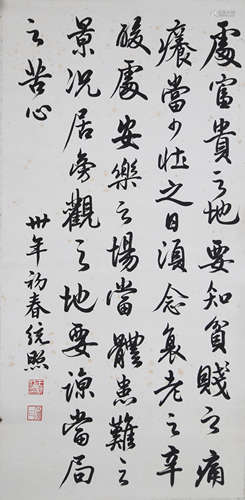 處富貴之地要知貧賤之痛
癢當少壯之日須念衰老之辛
酸處安樂之場當體患難之
景況居旁觀之地要諒當局
之苦心
卅年初春統照